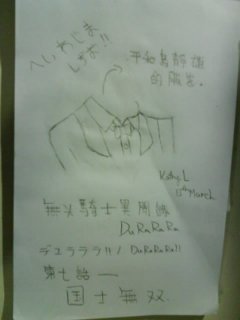 へいわじま
しずお!!
平和島靜雄
的服害.
Kathy.L
15th March
無头騎士異聞錄
DuRaRaRa
デュラララ!!/ DuRaRaRa!!
第七話 —
国士無双.